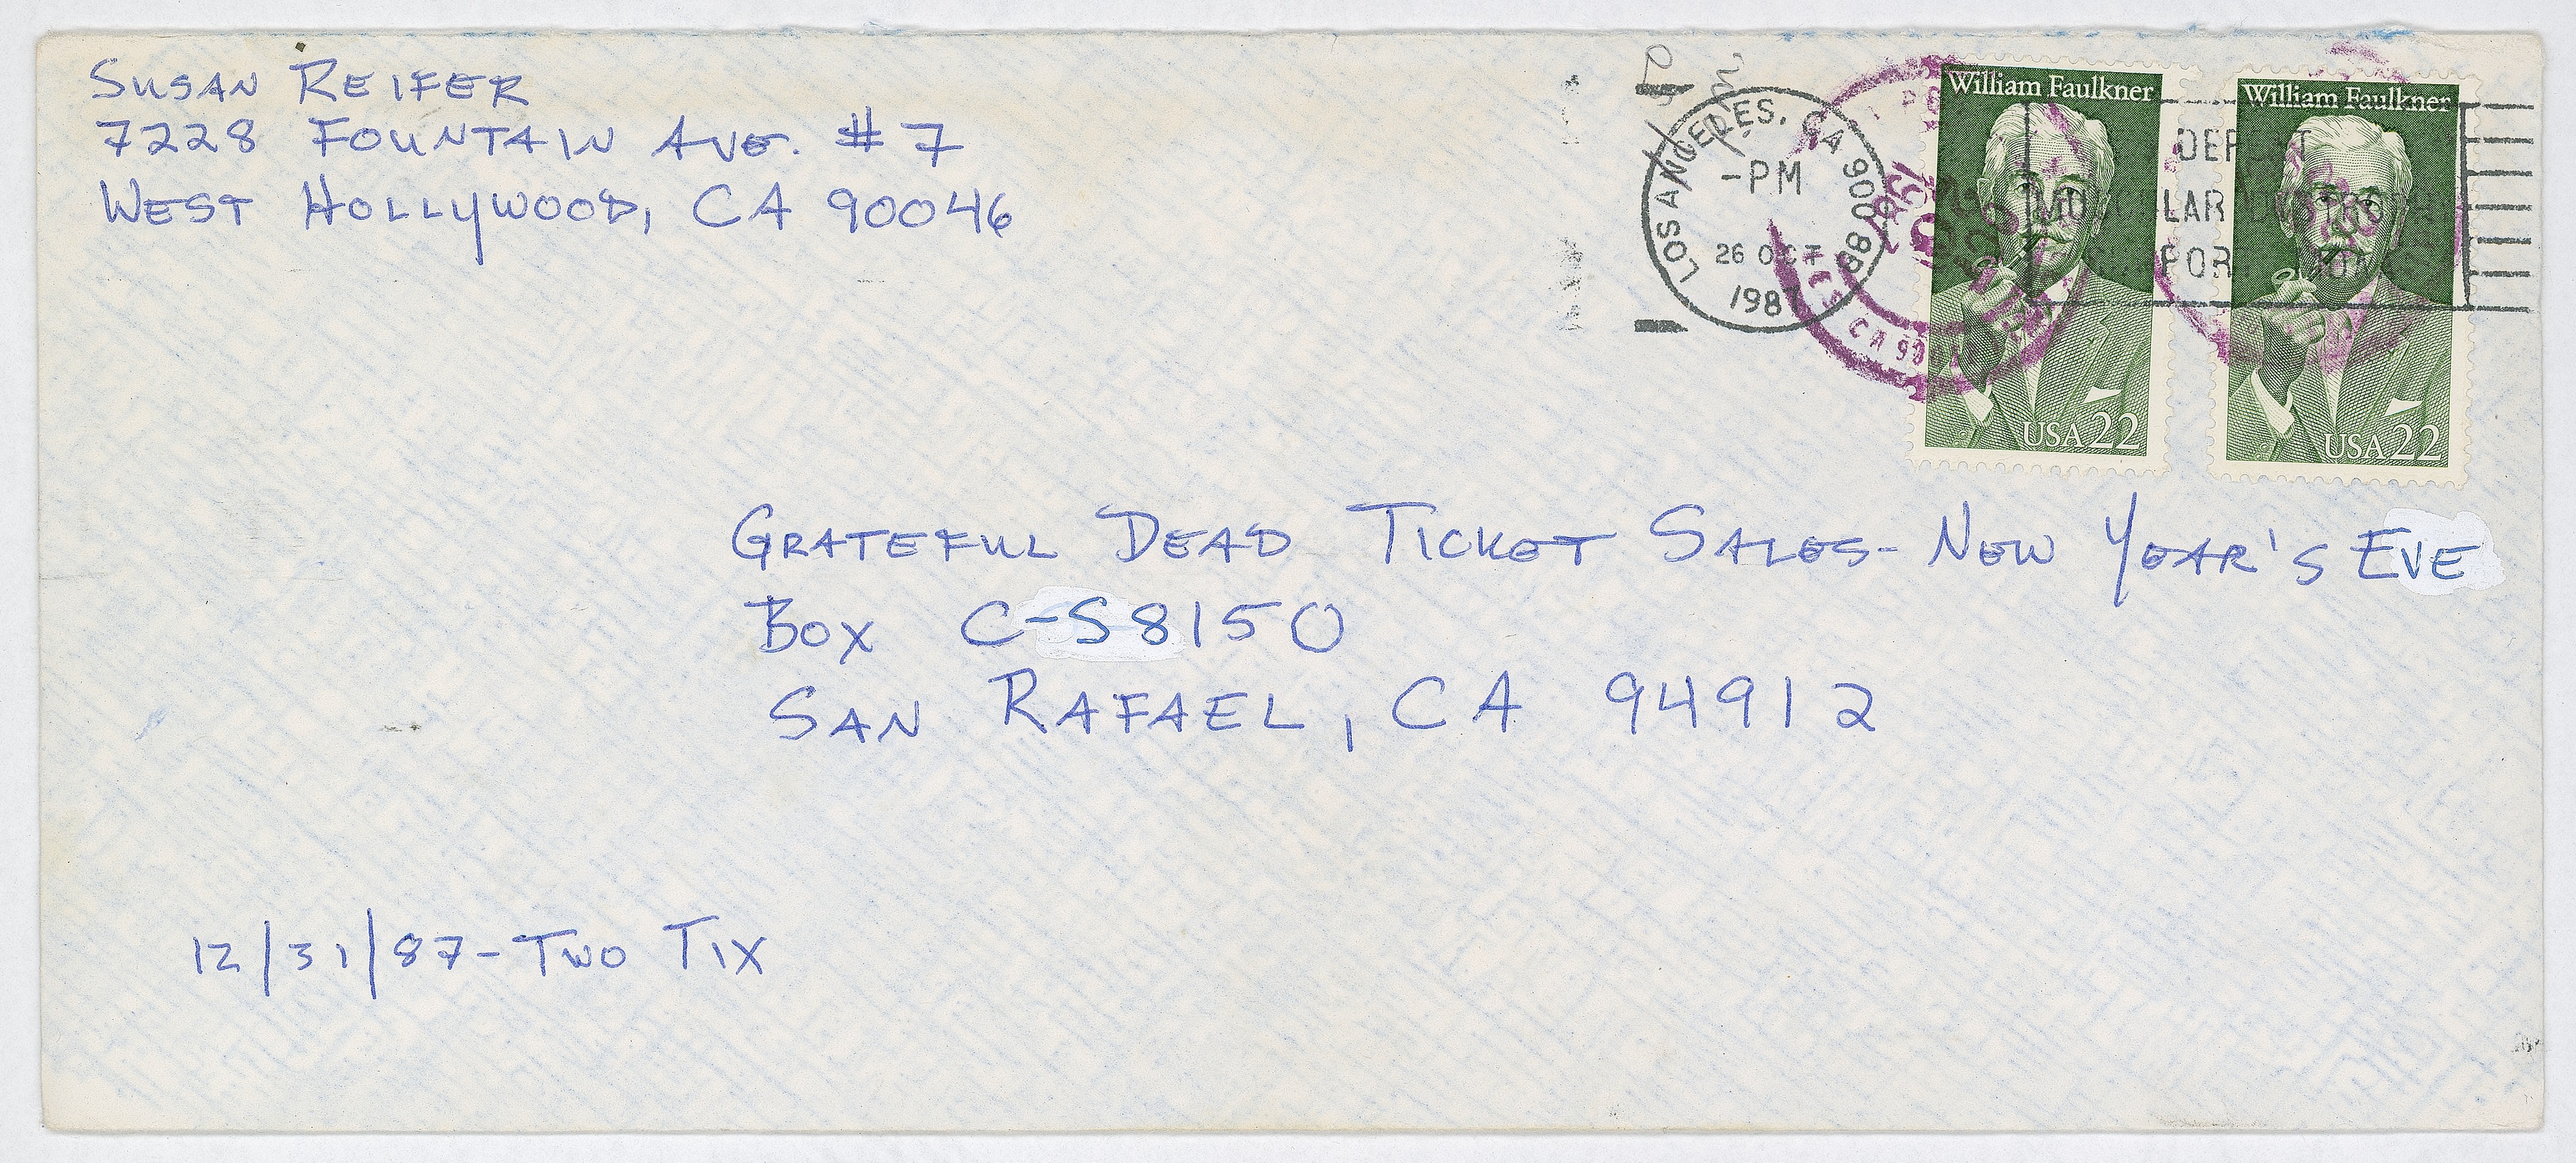 Susan Reifer
7228 Fountain Ave. #7
West Hollywood, CA 90046
LOS ANGELES, CA 900 88
-PM
26 OCT
1987
William Faulkner
USA 22
William Faulkner
USA 22
CA
Grateful Dead Ticket Sales- New Year's Eve
Box C-S8150
San Rafael, CA 94912
12/31/87-Two Tix